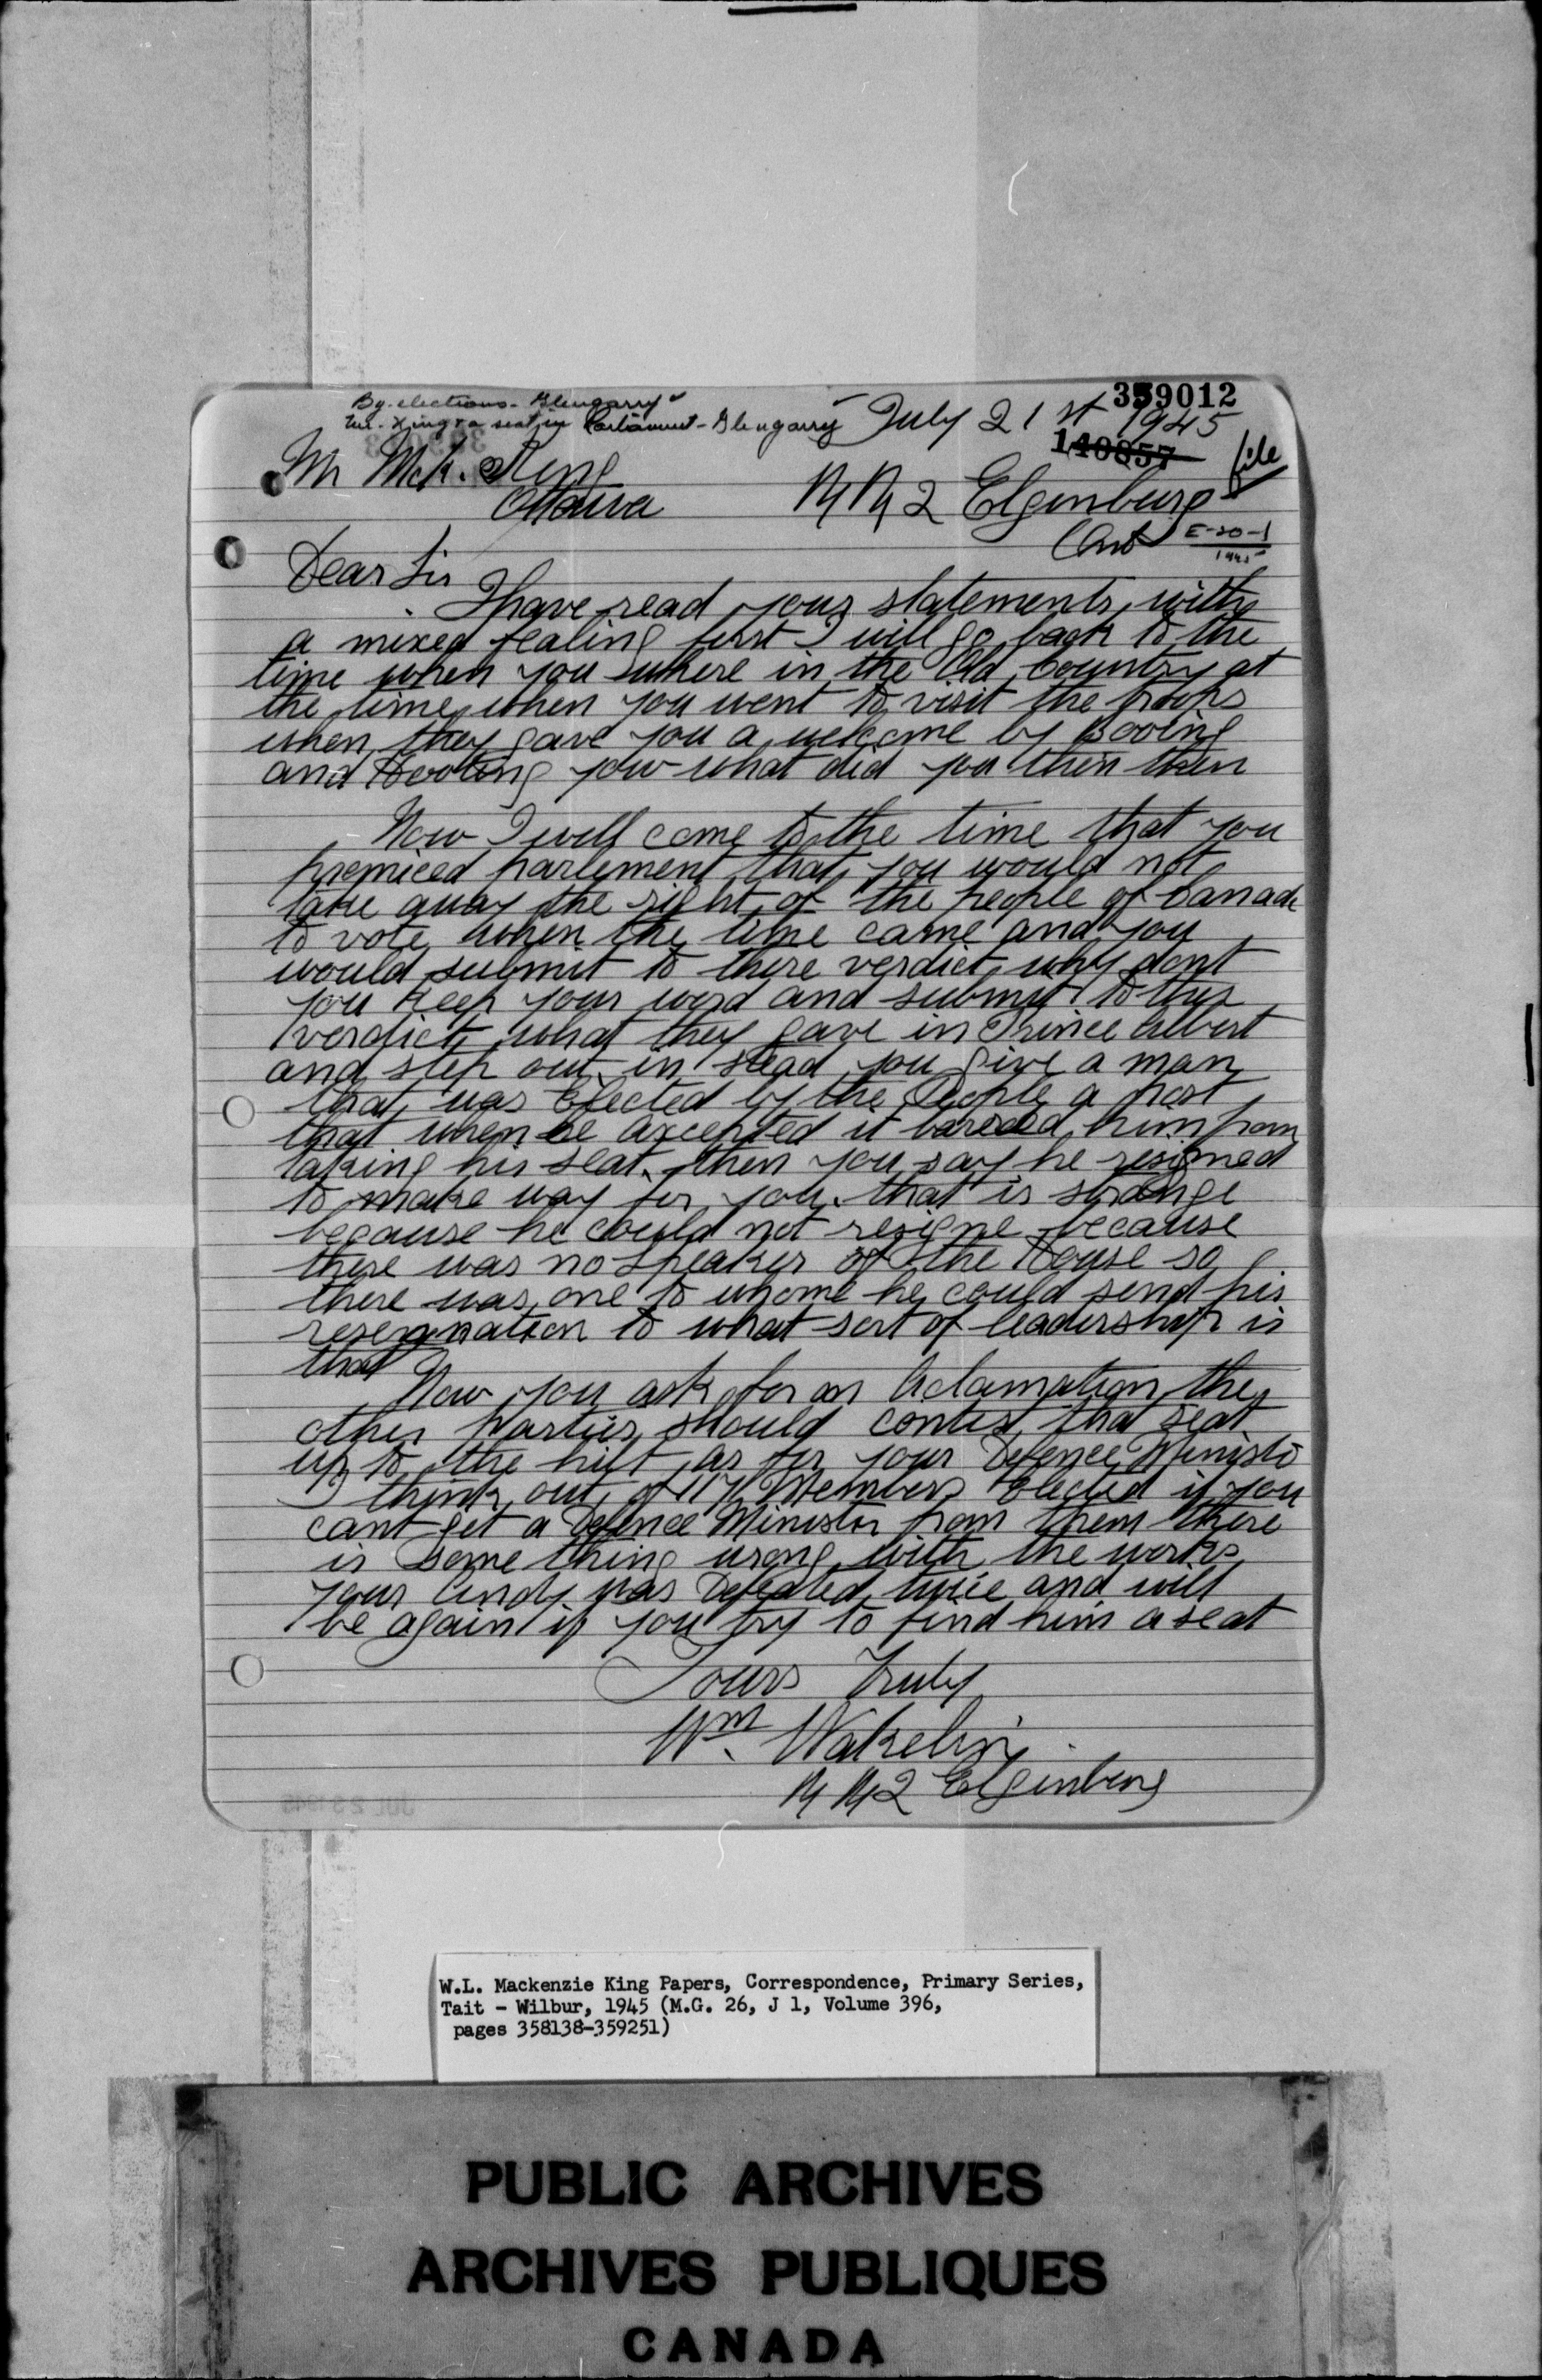 359012
By-elections - Glengarry
Mr. King & a seat in Parliament - Glengarry
July 21st 1945
140857
file
Mr McK. King
Ottawa
RR 2 Elginburg
Ont
E-20-1
1945
Dear Sir
I have read your statements with
a mixed fealing first I will go back to the
time when you where in the Old Country at
the time when you went to visit the troops
when they gave you a welcome by Booing
and Hooting you what did you thin then
Now I will come to the time that you
promiced parlement that you would not
take away the right of the people of Canada
to vote when the time came and you
would submit to there verdict why dont
you keep your word and submit to thys
verdict what they gave in Prince Albert
and step out in stead you give a man
that was Elected by the People a post
that when he axcepted it bareed him from
taking his seat. then you say he resigned
to make way for you. that is strange
because he could not resigne because
there was no speaker of the House so
there was one to whome he could send his
resegnation to what sort of leadership is
that
Now you ask for an Aclamation the
other parties should contest that seat
up to the hilt as for your Defence Ministo
I think out of 117 Members Elected if you
cant get a Defence Minister from them there
is some thing wrong with the works
your Andy was Defeated twice and will
be again if you try to find him a seat
Yours Truly
Wm. Wakelin
RR 2 Elginburg
W.L. Mackenzie King Papers, Correspondence, Primary Series,
Tait - Wilbur, 1945 (M.G. 26, J 1, Volume 396,
pages 358138-359251)
PUBLIC ARCHIVES
ARCHIVES PUBLIQUES
CANADA